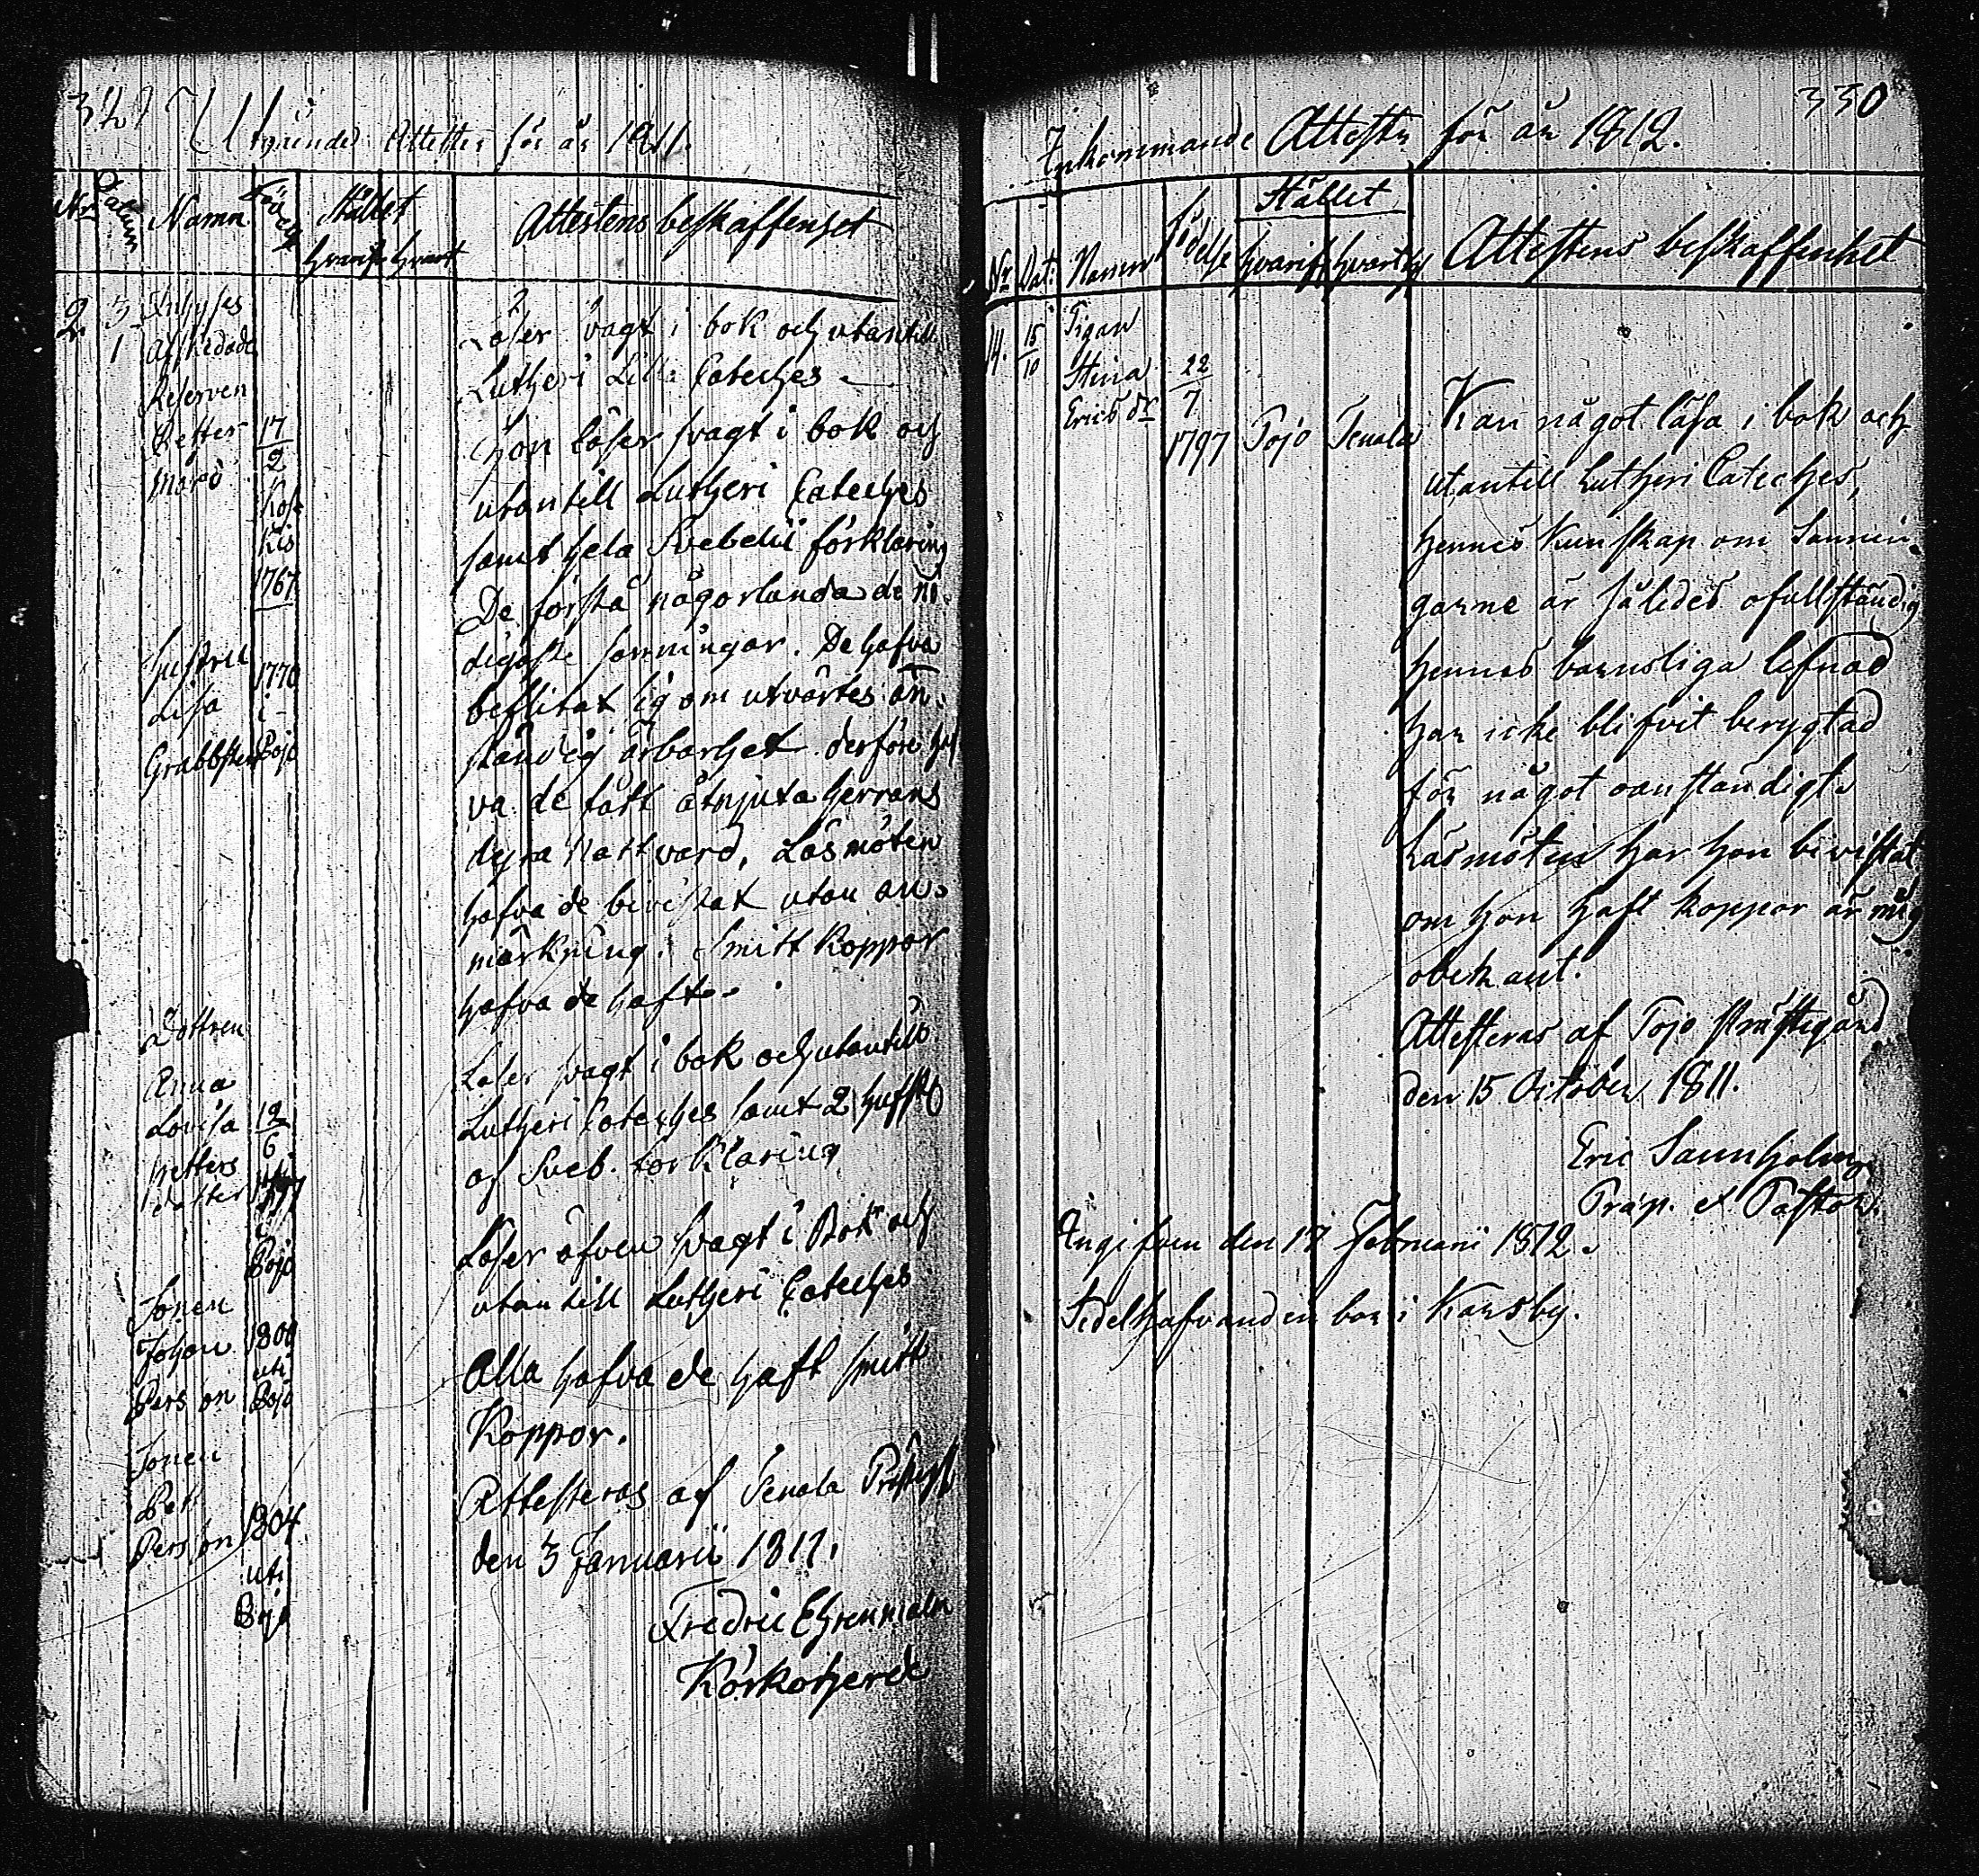 Attester för år 1811.
Nr Datum Namn Stället Attestens beskaffenhet
hvarifr hvart
2. 3 Inhyses
1 Afskedade
Reserven
Petter 17
Mård 2
Kis
1767
Läser svagt i bok och utantill
Lutheri Lilla Cateches
Hon läser svagt i bok och
utantill Lutheri Cateches
samt hela Svebelii förklaring
De förstå någorlunda de nö-
digaste sanningar. De hafva
beflitat sig om utvärtes an-
ständig ärbarhet derföre haf
va de fått åtnjuta Herrans
dyra Nattvard, Läsmöten
hafva de bevistat utan an-
märkning. Smitt Koppor
hafva de haft.
Hustru 1770
Lisa i
Grabbsten Pojo
Dottren
Anna
Lovisa 12
Petters 6
dotter
i
Pojo
Läser svagt i bok och utantill
Lutheri Cateches samt 2 Hufst
af Sveb. förklaring
Sonen
Johan 1800
Persson uti
Pojo
Läser äfven svagt i Bok och
utantill Lutheri Cateches
Alla hafva de haft smitt
Koppor.
Sonen
Pet
Persson 1804
uti
Pojo
Attesteras af Tenala Prästg
den 3 Januarii 1811.
Fredric Ehrenmalm
Körkoherde
330
Inkommande Attester för år 1812.
Stället
Nr Dat: Namn Födelse hvarifr hvart Attestens beskaffenhet
14. 15 Pigan
10 Stina 22
Ericsdr 7
1797 Pojo Tenala
Kan något läsa i bok och
utantill Lutheri Cateches,
hennes kunskap om Sannin-
garne är således ofullständig
hennes barnsliga lefnad
har icke blifvit berygtad
för något oanständigt.
Läsmöten har hon bevistat
om hon haft koppor är mig
obekant.
Attesteras af Pojo Prästegård
den 15 October 1811.
Eric Sannholm
Præp. et Pastor.
Ingifven den 17 Februarii 1812.
Sedelhafvanden bor i Karsby.